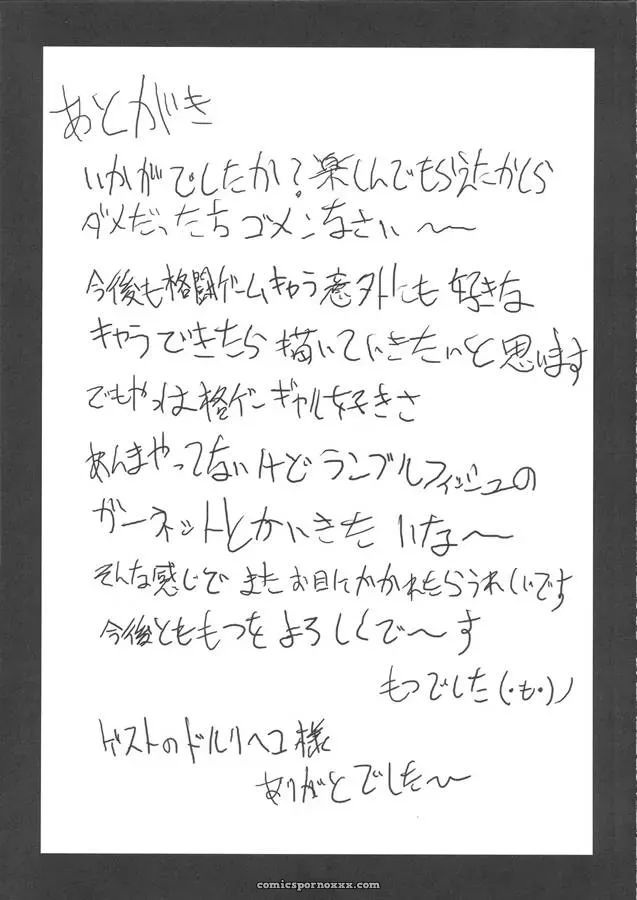 あとがき
いかがでしたか?楽しんでもらえたかしら
ダメだったらゴメンなさい〜
今後も格闘ゲームキャラ意外にも好きな
キャラできたら描いていきたいと思います
でもやっぱ格ゲーギャル好きさ
あんまやってないけどランブルフィッシュの
ガーネットとかいきたいな〜
そんな感じでまたお目にかかれたらうれしいです
今後とももつをよろしくで〜す
もつでした(・も・)ノ
ゲストのドルリヘコ様
ありがとでした〜
comicspornoxxx.com